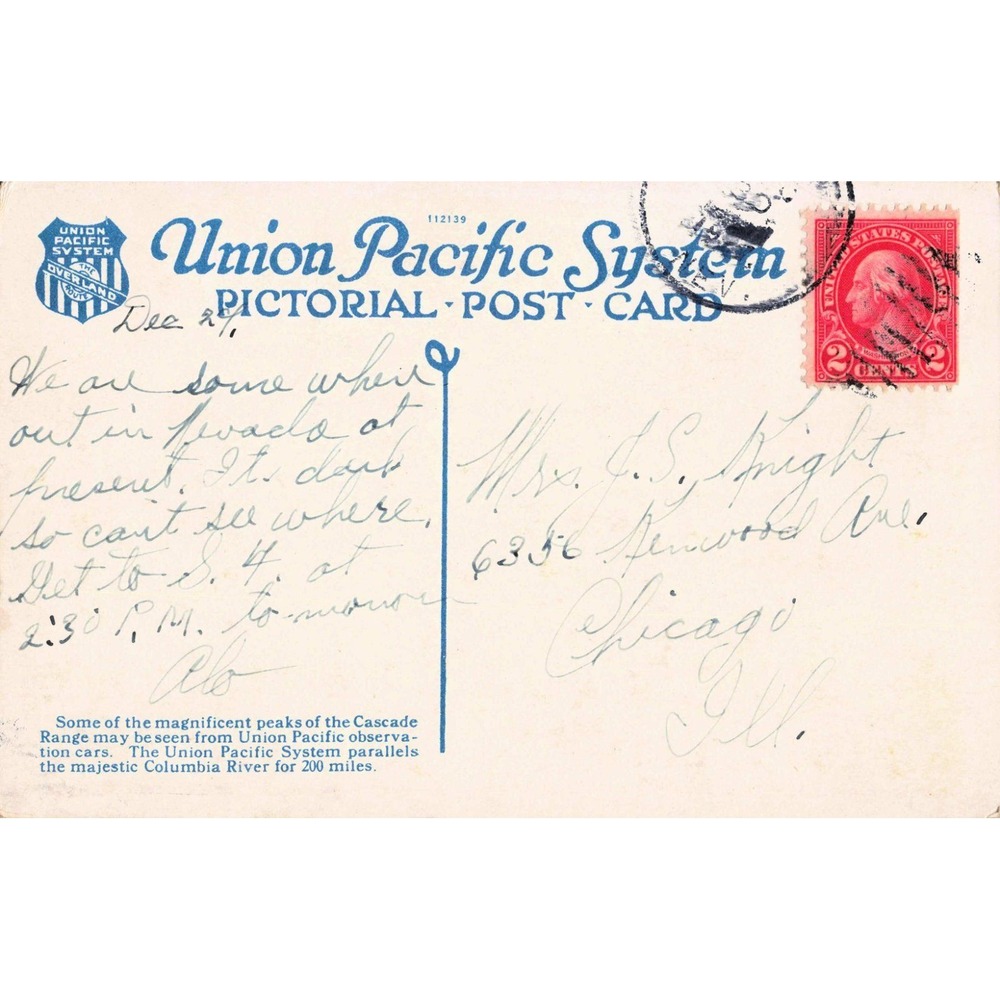 112139
UNION
PACIFIC
SYSTEM
THE
OVERLAND
ROUTE
Union Pacific System
PICTORIAL · POST · CARD
NEV.
UNITED STATES POSTAGE
2 CENTS 2
Dec
We are some where
out in Nevada at
present. Its dark
so cant see where.
Get to S. F. at
2:30 P.M. to-morrow
Mrs. J. S. Knight
6356 Kenwood Ave.
Chicago
Ill.
Some of the magnificent peaks of the Cascade
Range may be seen from Union Pacific observa-
tion cars. The Union Pacific System parallels
the majestic Columbia River for 200 miles.